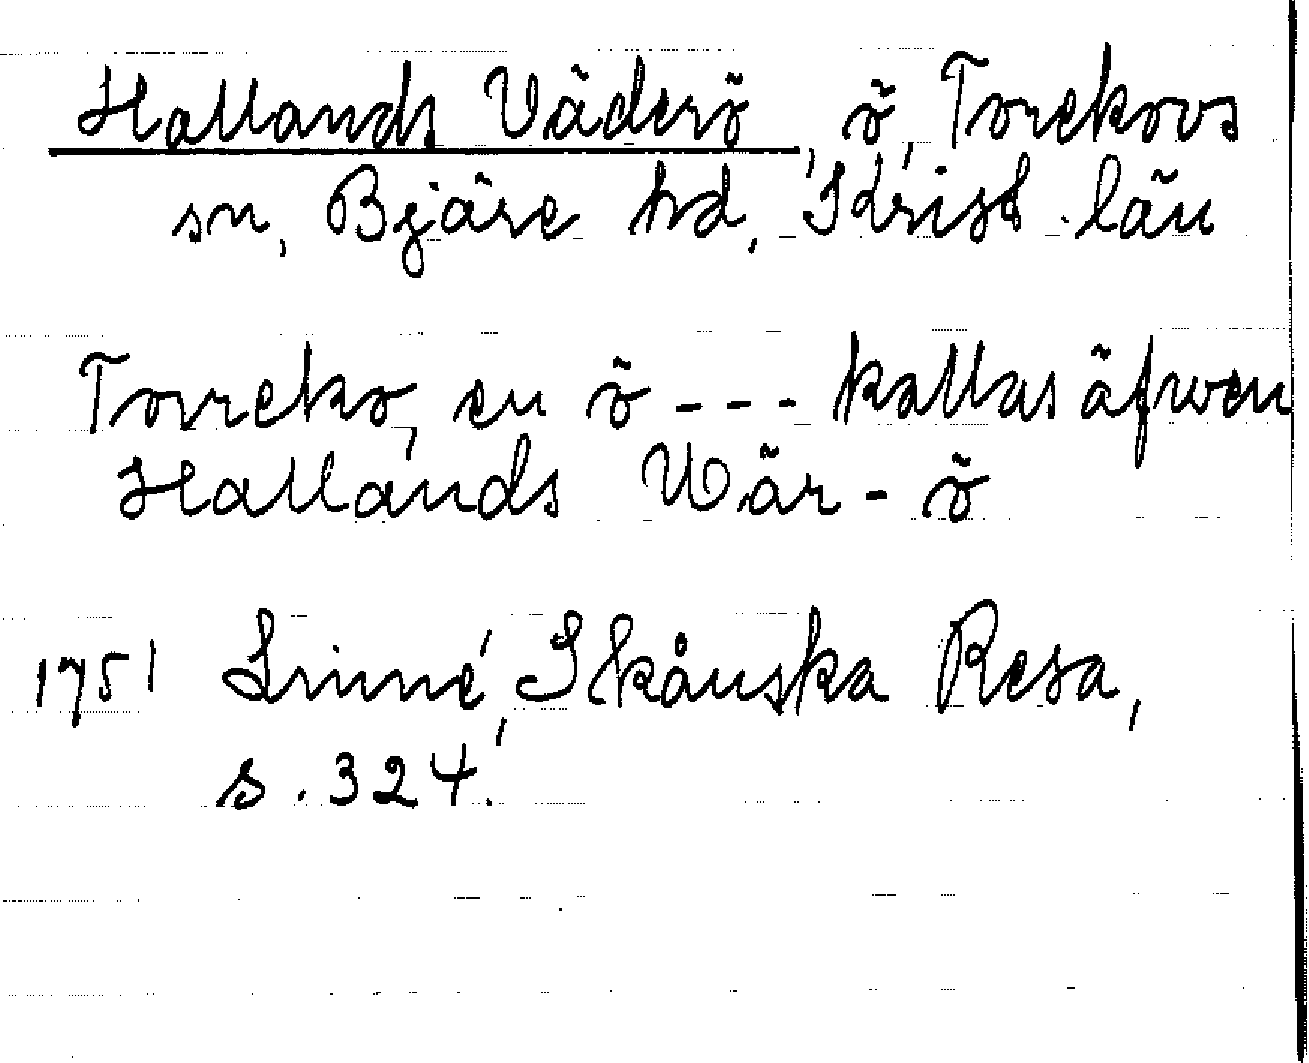 Hallands Väderö, ö, Torekovs
sn, Bjäre hd, Krist. län
Torreko, en ö --- kallas äfwen
Hallands Wär-ö
1751 Linné, Skånska Resa,
s. 324.